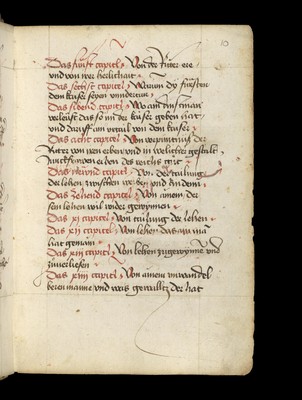 10
Das funfft capitel Von der ritter ere
und von irer herlichait
Das sechst capitel Warum dy fursten
dem kaiser seyen
Das sibend capitel Wo am dinstman
verleust das so im der kaiser geben hat
und darauff ain urtail von dem kaiser
Das acht capitel Von der
Ritter von iren erben und in welicher gestalt
erben des reichs gut
Das neund capitel Von der tailung
der lehen zwischen und andern
Das zehend capitel Von ainem der
sein lehen wil wider gewynnen
Das xi capitel Von teilung der lehen
Das xii capitel Von lehen das ain man
hat gemain
Das xiii capitel Von lehen zu gewynne und
zuverliesen
Das xiiii capitel Von ainem unwandel
beren manne und weis gewalltz der hat